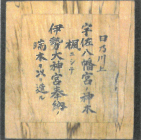 日乃川上
宇佐八幡宮ノ神木
楓ニシテ
伊勢大神宮奉納ノ
流木ヲ以テ造ル